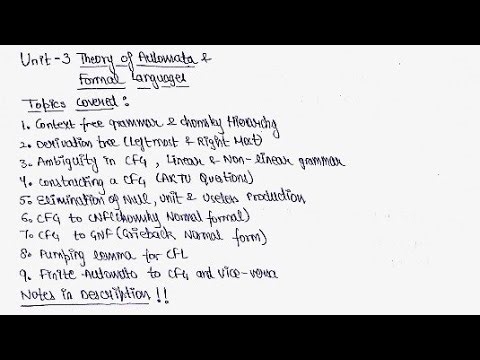 Unit-3 Theory of Automata &
Formal Languages
Topics Covered:
1. Context free grammar & chomsky Hierarchy
2. Derivation tree (leftmost & Right Most)
3. Ambiguity in CFG, Linear & Non-linear grammar
4. Constructing a CFG (AKTU Questions)
5. Elimination of Null, Unit & Useless Production
6. CFG to CNF (Chomsky Normal formal)
7. CFG to GNF (Grieback Normal form)
8. Pumping lemma for CFL
9. Finite Automato to CFG and vice-versa
Notes in Description !!